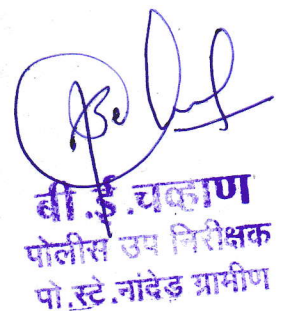 बी.ई.चव्हाण
पोलीस उप निरीक्षक
पो.स्टे.नांदेड ग्रामीण